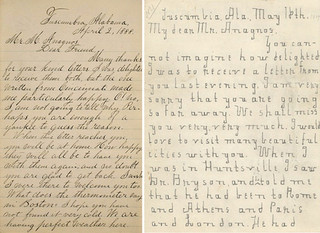 Tuscumbia, Alabama,
April 2, 1888.
Mr. M. Anagnos
Dear Friend
Many thanks
for your kind letters. I was delighted
to receive them both, but the one
written from Cincinnati made
me particularly happy. O! no,
I am not going to tell you. Per-
haps you are enough of a
to guess the reason.
When this letter reaches you
you will be at home. How happy
they must all be to have you
with them again, and no doubt
you are glad to get back. I wish
I were there to welcome you too.
What does the thermometer say
in Boston? I hope you have
not found it very cold. We are
having perfect weather here.
Tuscumbia, Ala. May 18th.
My dear Mr. Anagnos.
You can
not imagine how delighted
I was to receive a letter from
you last evening. I am very
sorry that you are going
so far away. We shall miss
you very, very much. I would
love to visit many beautiful
cities with you. When I
was in Huntsville I saw
Dr. Bryson and told me
that he had been to Rome
and Athens and Paris
and London. He had